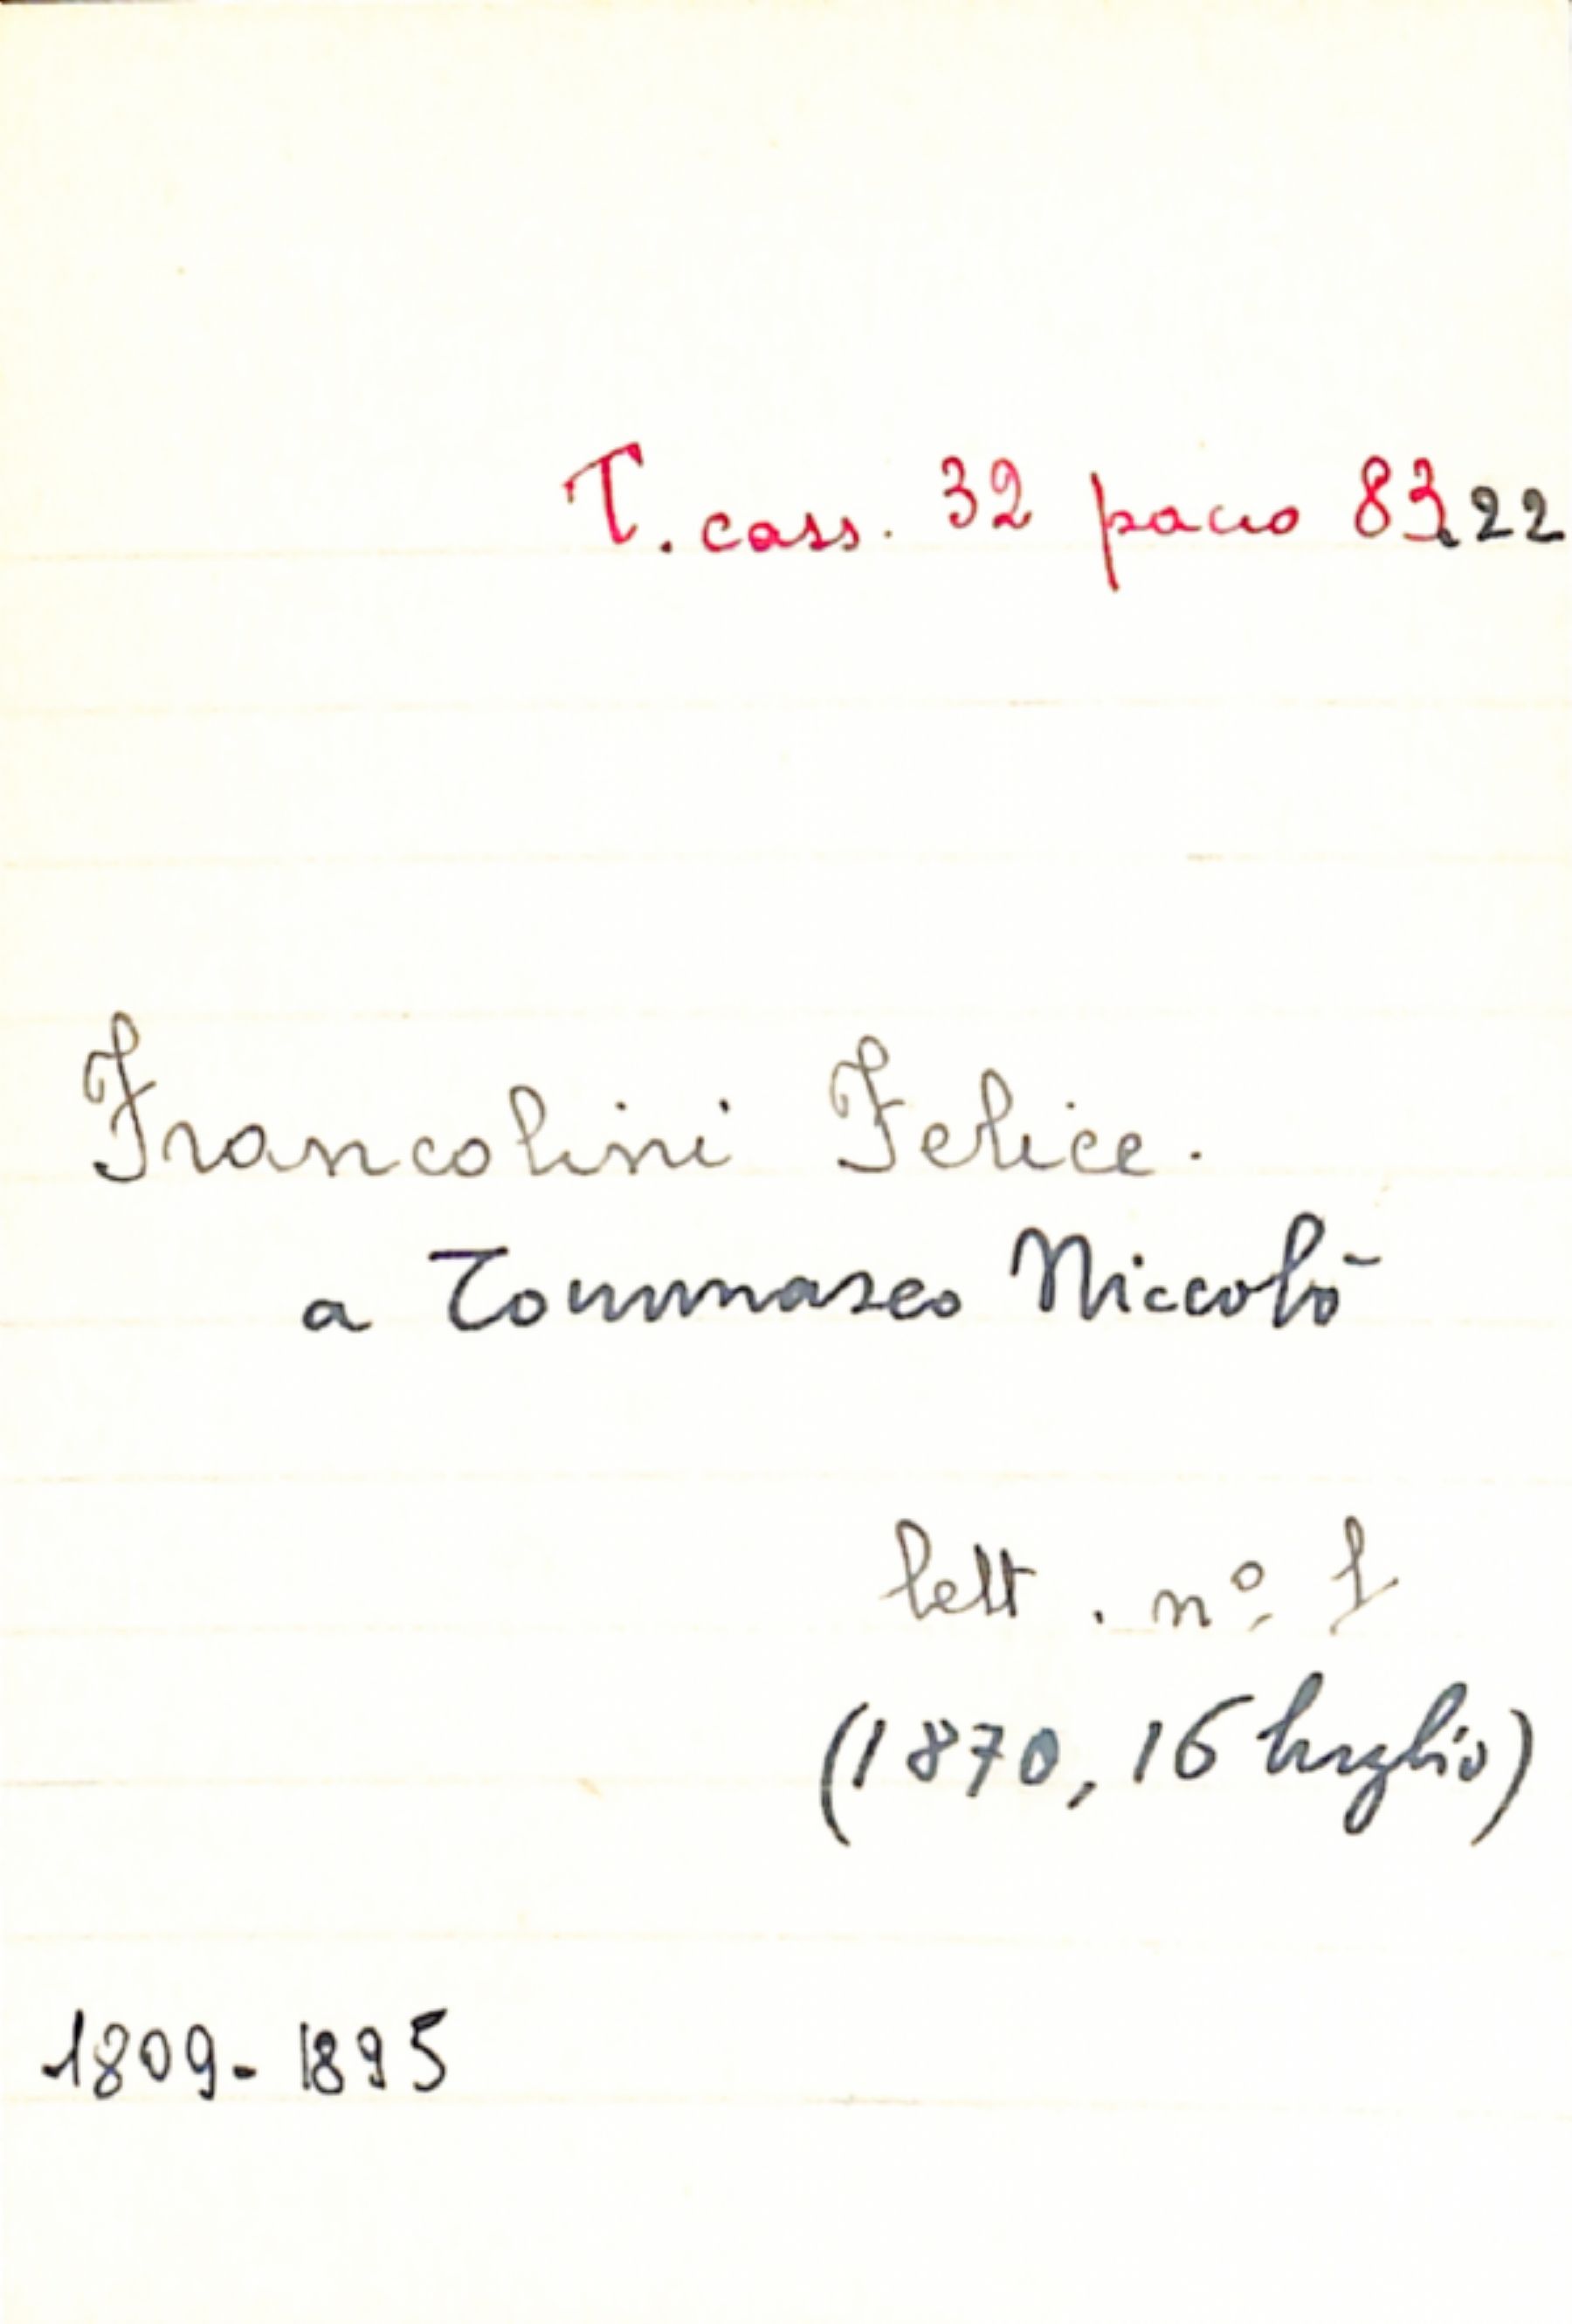 T. cass. 32 pacco 83.22
Francolini Felice.
a Tommaseo Niccolò
lett. nº 1
(1870, 16 luglio)
1809-1895